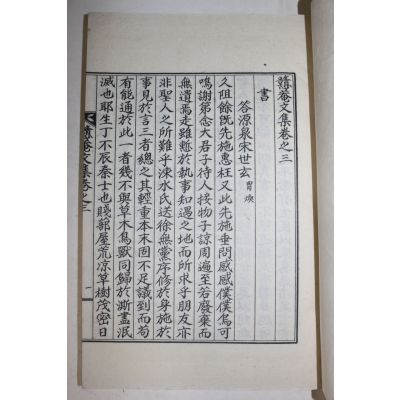 蠶菴文集卷之三
書
答源泉宋世玄 胄煥
久阻餘旣先施惠枉又此先施垂問感感僕僕烏可
鳴謝第念大君子待人接物子諒周遍至若廢棄而
無遺焉走雖慙於執事知遇之地而所求乎朋友亦
非聖人之所難乎涑水氏送徐無黨序修於身施於
事見於言三者總之其輕重本末固不足議到而苟
有能通於此一者幾不與草木鳥獸同歸於澌盡泯
滅也耶生丁不辰秦士也賤蔀屋荒凉草樹茂密日
文集卷之三
一